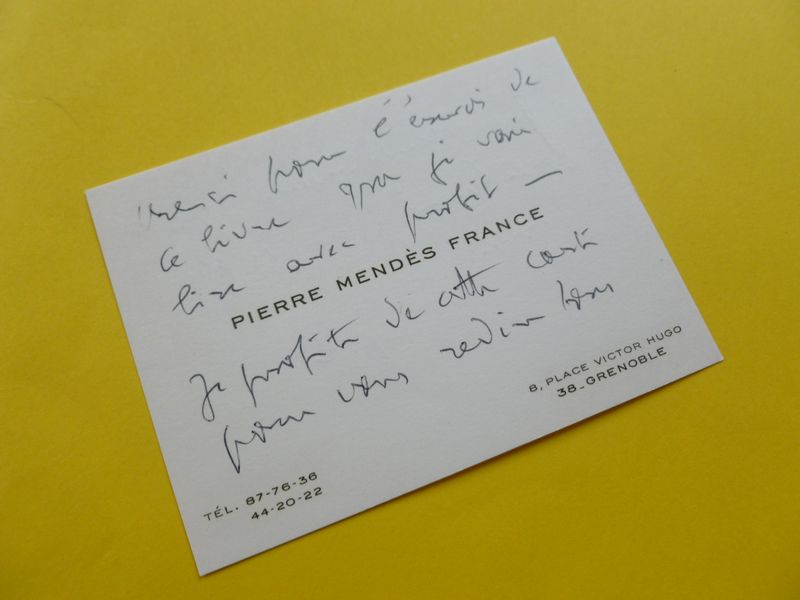 merci pour l'envoi de
ce livre que je vais
lire avec profit —
PIERRE MENDÈS FRANCE
Je profite de cette carte
pour vous redire tous
8, PLACE VICTOR HUGO
38_GRENOBLE
TÉL. 87-76-36
44-20-22